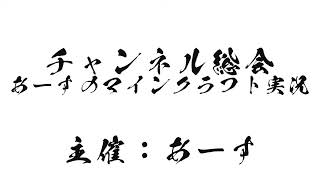 チャンネル総会
おーすのマインクラフト実況
主催：おーす